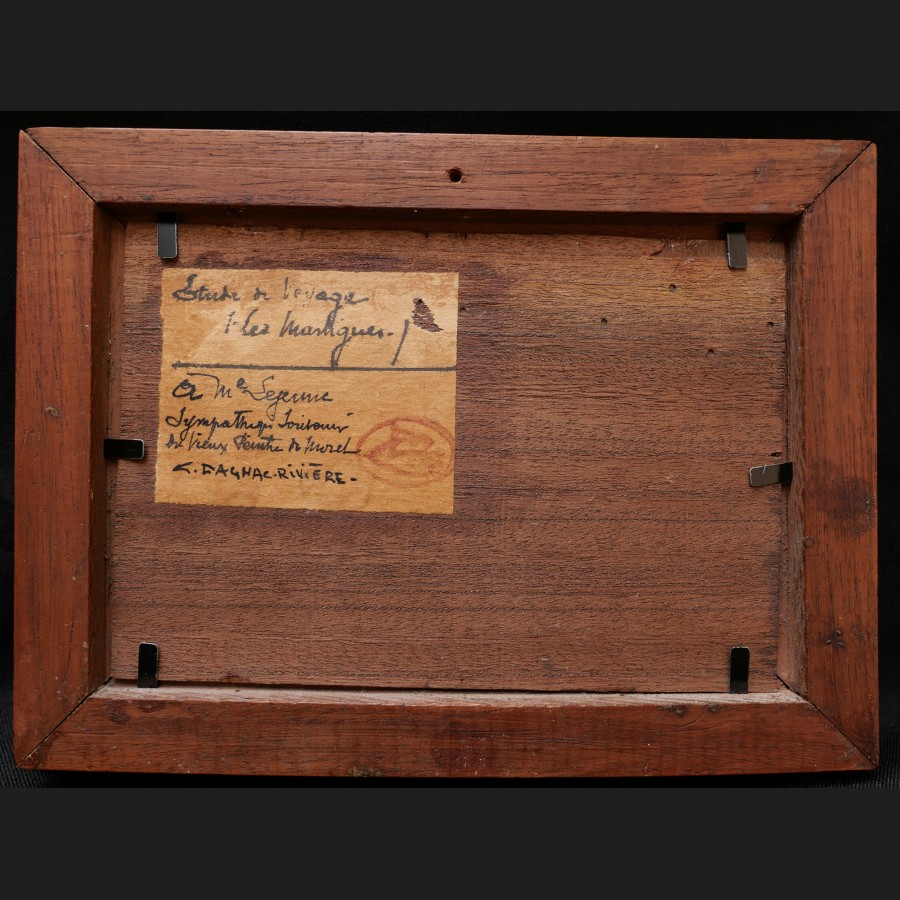 Etude de Voyage
(Les Martigues.)
à Me Lejeune
Sympathique Souvenir
du Vieux Peintre de Moret
C. CAGNAC-RIVIÈRE-